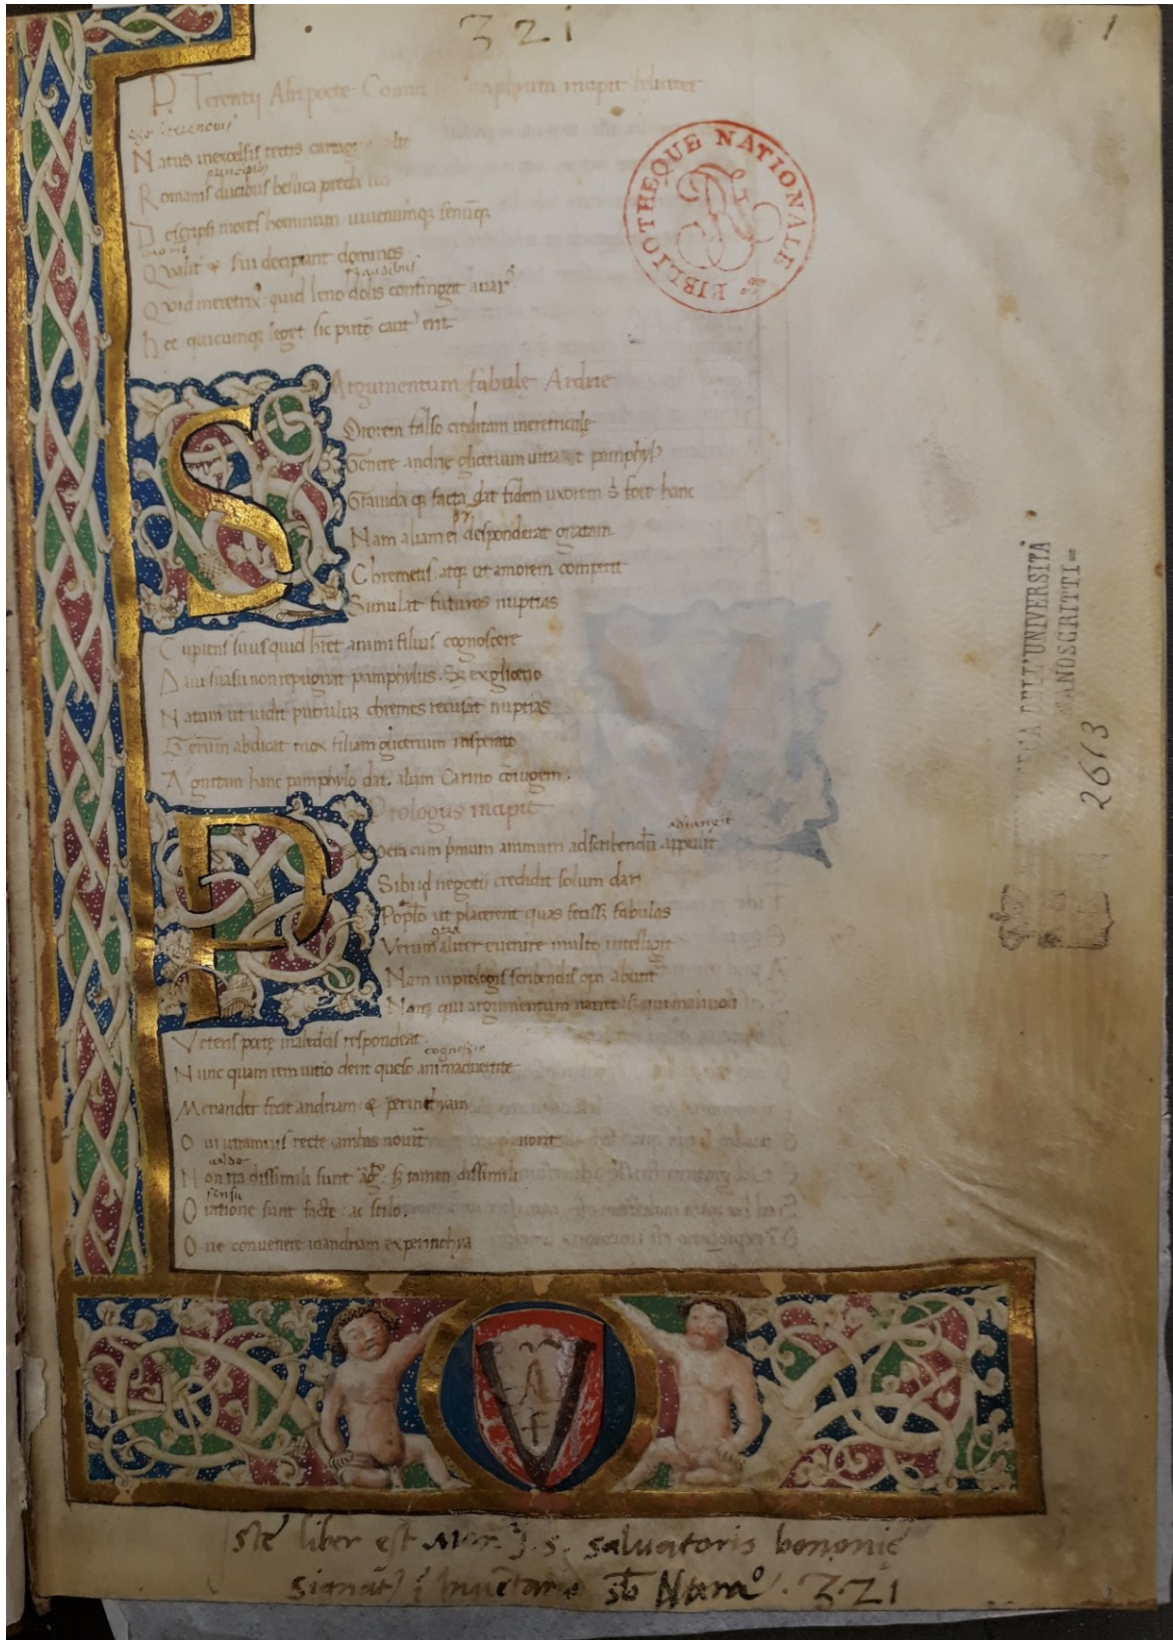 321
1
P. Terentij Afri poete Comici epitaphium incipit feliciter
ego terencius
Natus in excelsis tectis cartag
principibus
Romanis ducibus bellica preda fui
Descripsi mores hominum iuuenumq; senumq;
Qualit & serui decipiant dominos
fraudibus
Quid meretrix quid leno dolis contingit auar
hec quicumq; leget sic puto caut erit
BIBLIOTHEQUE NATIONALE
Argumentum fabule Andrie
Sororem falso creditam meretricule
Genere andrie glicerium uitiat pamphyl
Grauida q facta dat fidem uxorem s fore hanc
Nam aliam ei desponderat gnatam
Chremetis atq; ut amorem comperit
Simulat futuras nuptias
Cupiens suus quid hret animi filius cognoscere
Daui suasu non repugnat pamphylus. Sz ex glicerio
Natum ut uidit puerulum chremes recusat nuptias
Generum abdicat mox filiam glicerium insperato
Agnitam hanc pamphylo dat. aliam Carino coiugem.
Prologus incipit
adiungit
Poeta cum pmum animum ad scribendu appulit
Sibi id negotij credidit solum dari
Poplo ut placerent quas fecissz fabulas
Verum aliter euenire multo intelligit
Nam in prologis scribendis opa abutit
Non qui argumentum narret sz qui maliuoli
Veteris poete maledictis respondeat.
cognoscite
Nunc quam rem uitio dent queso animaduertite
Menander fecit andriam & perinthyam
Qui utramuis recte ambas nouit
ualde
Non ita dissimili sunt sz tamen dissimili
sensu
Oratione sunt facte ac stilo.
Que conuenere in andriam ex perinthya
DELL'UNIVERSITÀ
MANOSCRITTI
2613
Iste liber est s. saluatoris bononie
signat inuetario sb Numo. 321